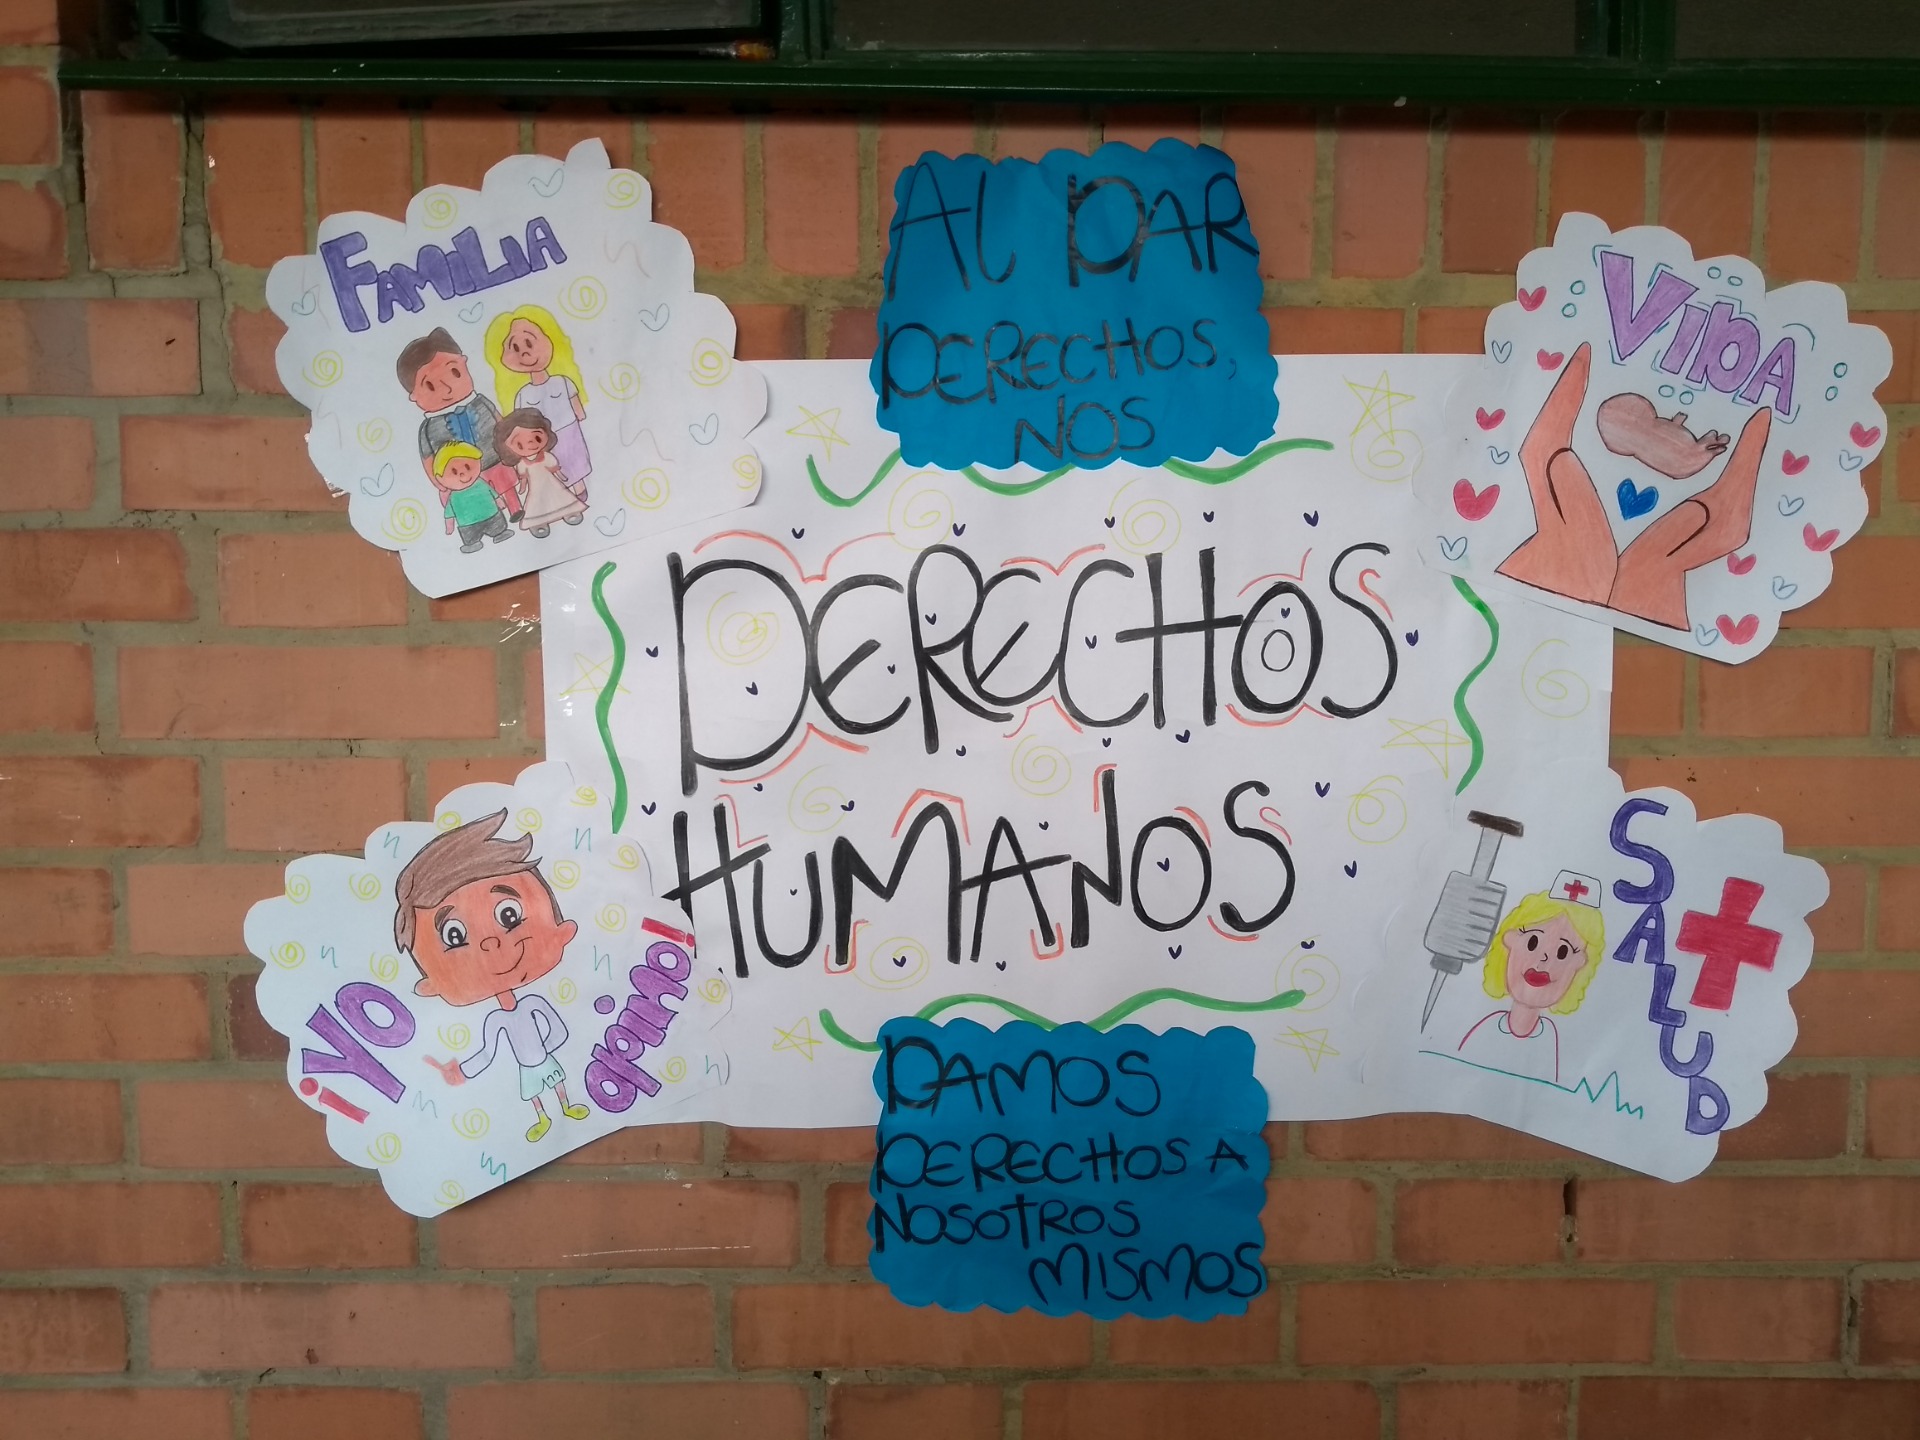 FAMILIA
AL DAR
DERECHOS,
NOS
VIDA
DERECHOS
HUMANOS
¡YO
opino!
SALUD
DAMOS
DERECHOS A
NOSOTROS
MISMOS